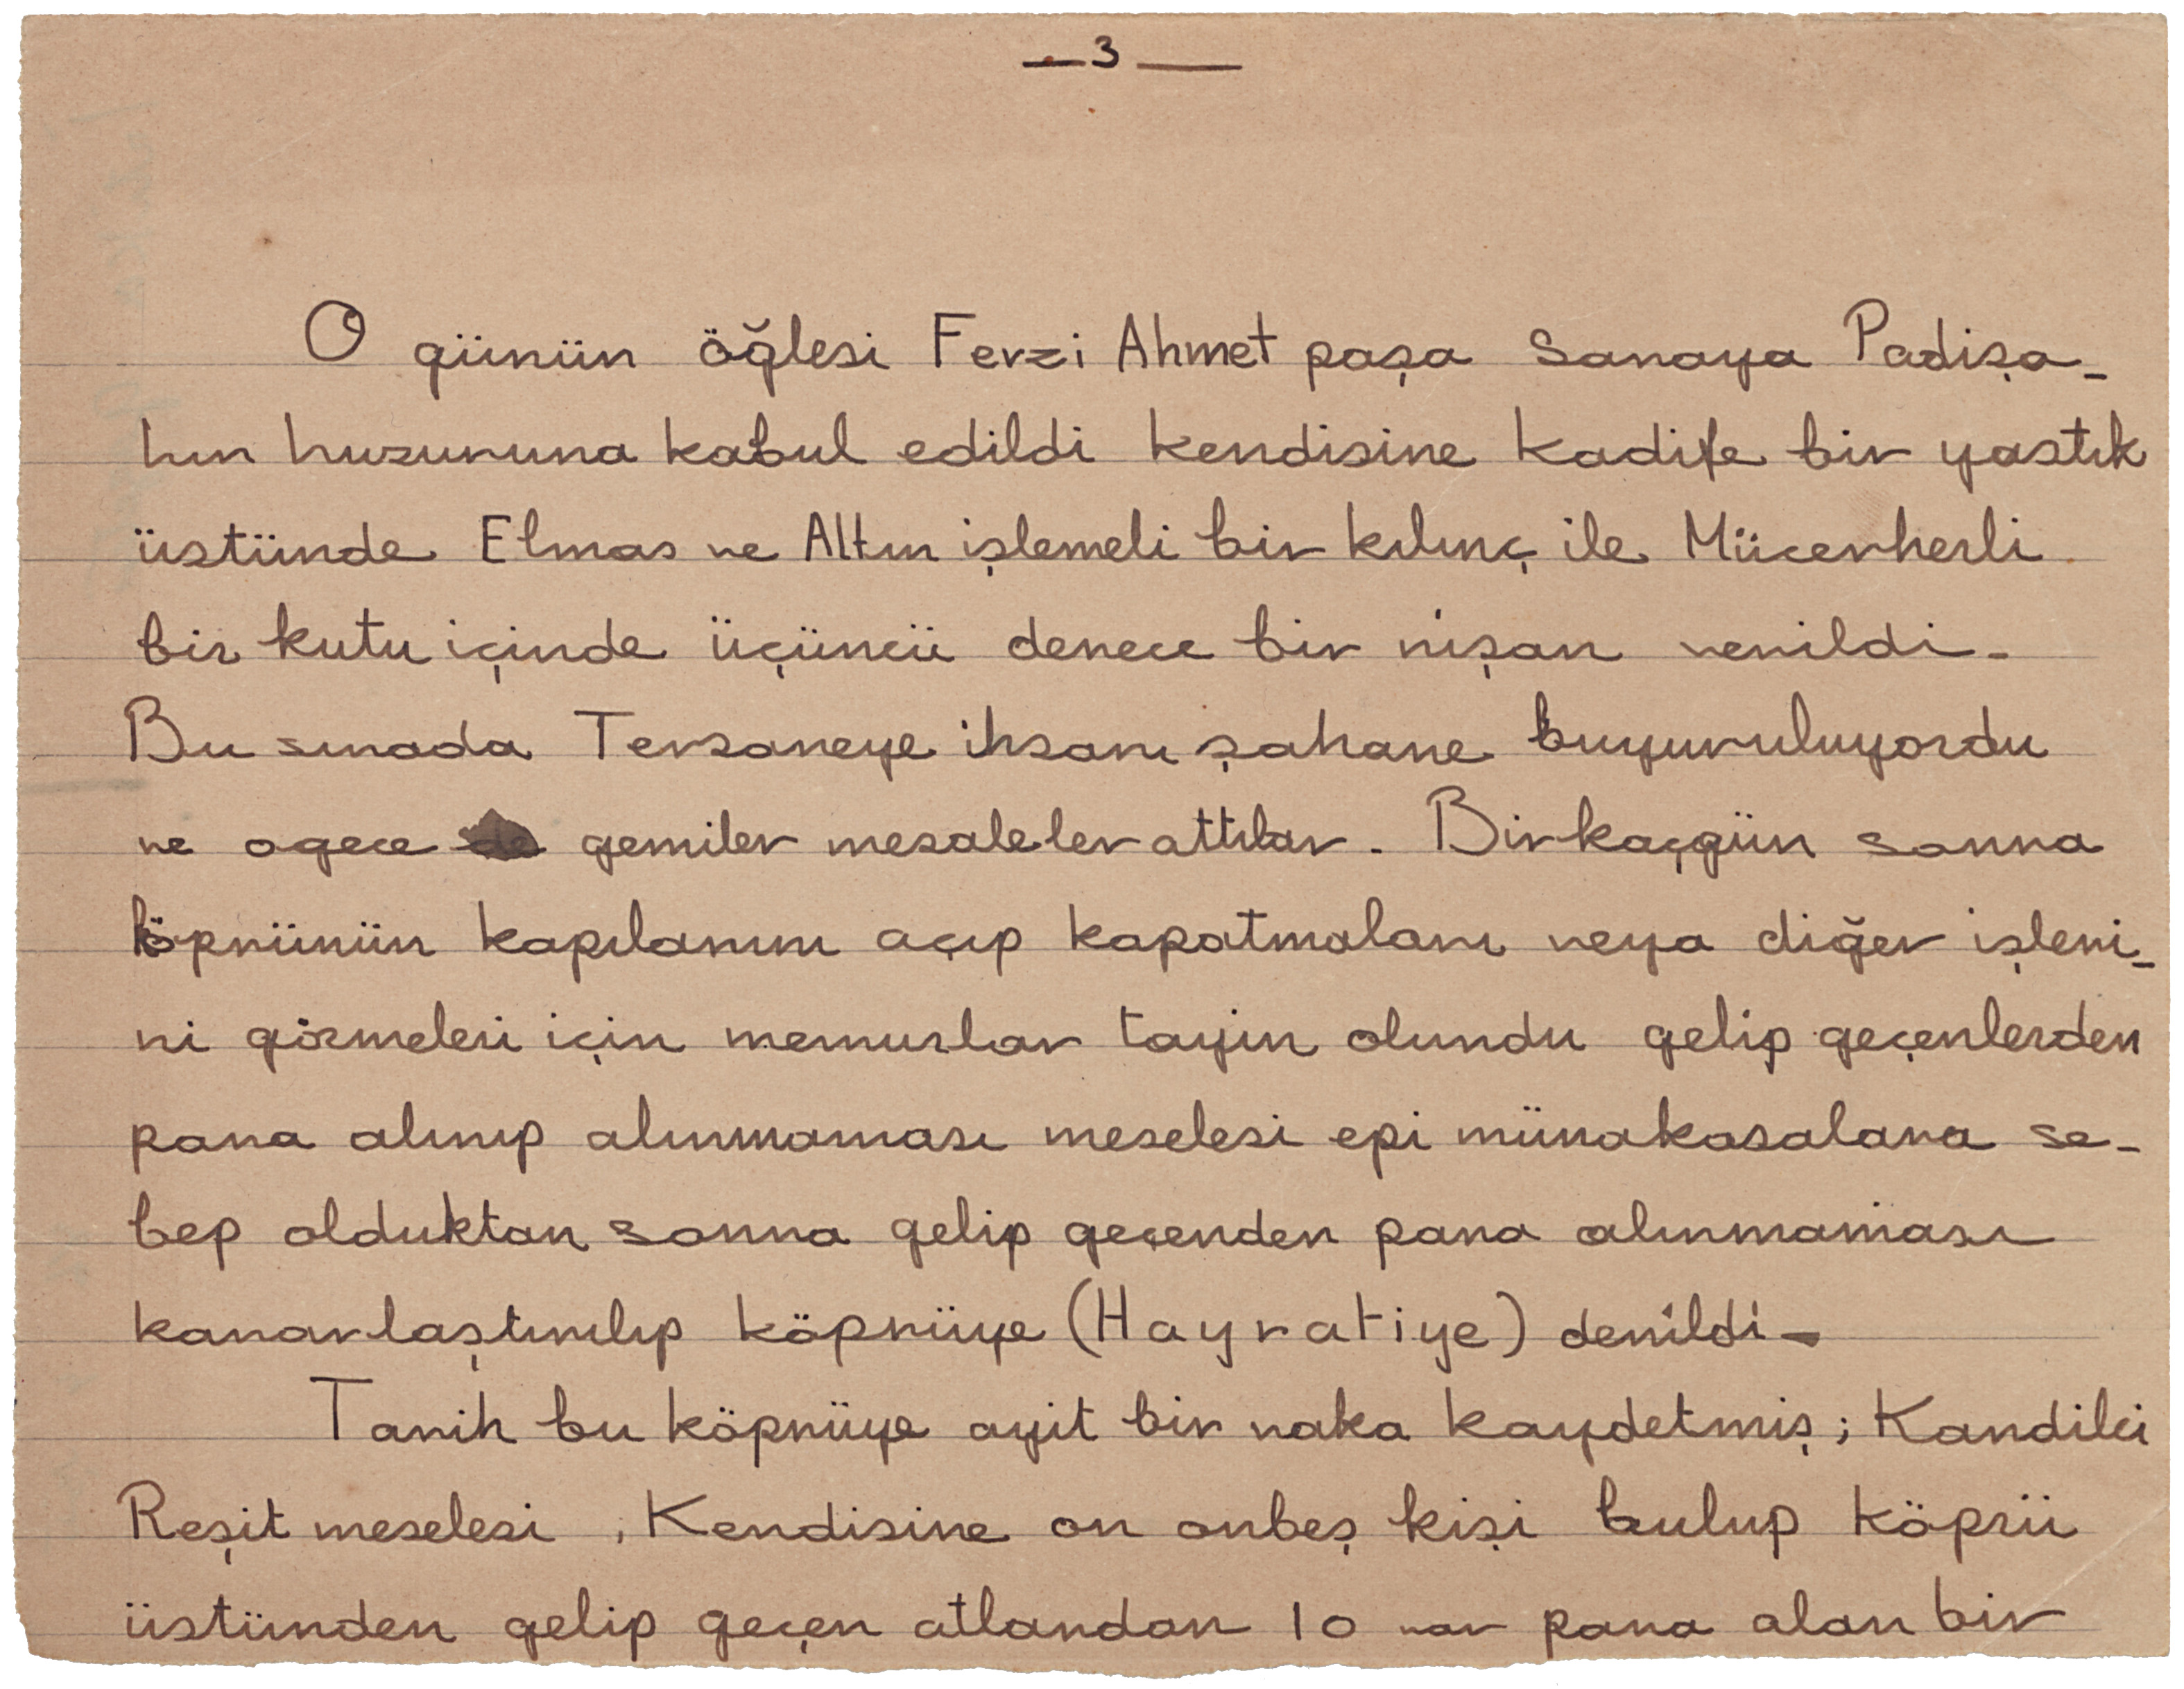 — 3 —
O günün öğlesi Fevzi Ahmet paşa Saraya Padişa-
hın huzuruna kabul edildi kendisine kadife bir yastık
üstünde Elmas ve Altın işlemeli bir kılınç ile Mücevherli
bir kutu içinde üçüncü derece bir nişan verildi.
Bu sırada Tersaneye ihsanı şahane buyuruluyordu
ve ogece gemiler mesaleler attılar. Birkaçgün sonra
köprünün kapılarını açıp kapatmaları veya diğer işleri-
ni görmeleri için memurlar tayin olundu gelip geçenlerden
para alınıp alınmaması meselesi epi münakasalara se-
bep olduktan sonra gelip geçenden para alınmaması
kararlaştırılıp köprüye (Hayratiye) denildi.
Tarih bu köprüye ayit bir vaka kaydetmiş; Kandilci
Reşit meselesi, Kendisine on onbeş kişi bulup köprü
üstünden gelip geçen atlardan 10 nar para alan bir